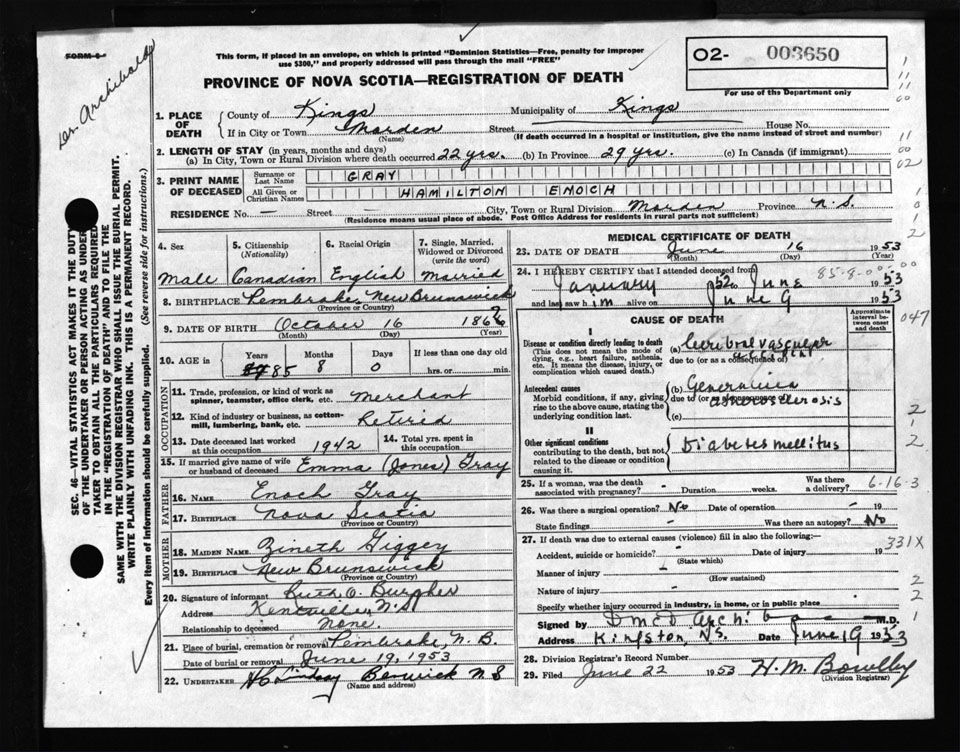 FORM 6
Dr. Archibald
This form, if placed in an envelope, on which is printed "Dominion Statistics—Free, penalty for improper
use $300," and properly addressed will pass through the mail "FREE"
PROVINCE OF NOVA SCOTIA—REGISTRATION OF DEATH
02- 003650
For use of the Department only
SEC. 46—VITAL STATISTICS ACT MAKES IT THE DUTY
OF THE UNDERTAKER OR PERSON ACTING AS UNDER-
TAKER TO OBTAIN ALL THE PARTICULARS REQUIRED
IN THE "REGISTRATION OF DEATH" AND TO FILE THE
SAME WITH THE DIVISION REGISTRAR WHO SHALL ISSUE THE BURIAL PERMIT.
WRITE PLAINLY WITH UNFADING INK. THIS IS A PERMANENT RECORD.
Every item of Information should be carefully supplied. (See reverse side for instructions.)
1. PLACE OF DEATH
County of Kings Municipality of Kings
If in City or Town Morden Street House No.
(Name) (If death occurred in a hospital or institution, give the name instead of street and number)
2. LENGTH OF STAY (in years, months and days)
(a) In City, Town or Rural Division where death occurred 22 yrs. (b) In Province 29 yrs. (c) In Canada (if immigrant)
3. PRINT NAME OF DECEASED
Surname or Last Name GRAY
All Given or Christian Names HAMILTON ENOCH
RESIDENCE No. — Street — City, Town or Rural Division Morden Province N.S.
(Residence means usual place of abode. Post Office Address for residents in rural parts not sufficient)
4. Sex 5. Citizenship (Nationality) 6. Racial Origin 7. Single, Married, Widowed or Divorced (write the word)
Male Canadian English Married
8. BIRTHPLACE Pembroke, New Brunswick
(Province or Country)
9. DATE OF BIRTH October 16 186
(Month) (Day) (Year)
10. AGE in Years Months Days If less than one day old
85 8 0 hrs. or min.
OCCUPATION
11. Trade, profession or kind of work as spinner, teamster, office clerk, etc. Merchant
12. Kind of industry or business, as cotton-mill, lumbering, bank, etc. Retired
13. Date deceased last worked at this occupation 1942 14. Total yrs. spent in this occupation
15. If married give name of wife or husband of deceased Emma (Jones) Gray
FATHER
16. NAME Enoch Gray
17. BIRTHPLACE Nova Scotia
(Province or Country)
MOTHER
18. MAIDEN NAME Zineth Giggey
19. BIRTHPLACE New Brunswick
(Province or Country)
20. Signature of informant Ruth O. Burgher
Address Kentville, N.S.
Relationship to deceased None.
21. Place of burial, cremation or removal Pembroke, N.B.
Date of burial or removal June 19, 1953
22. UNDERTAKER HC Lindsay Berwick N S
(Name and address)
MEDICAL CERTIFICATE OF DEATH
23. DATE OF DEATH June 16 1953
(Month) (Day) (Year)
24. I HEREBY CERTIFY that I attended deceased from 85-8-0
January 1952 to June 1953
and last saw him alive on June 9 1953
CAUSE OF DEATH
Approximate interval between onset and death
047
I
Disease or condition directly leading to death (a) Cerebral vascular accident
(This does not mean the mode of dying, e.g., heart failure, asthenia, etc. It means the disease, injury, or complication which caused death.)
due to (or as a consequence of)
Antecedent causes (b) Generalized arteriosclerosis
Morbid conditions, if any, giving rise to the above cause, stating the underlying condition last.
due to (or as a consequence of)
(c)
II
Other significant conditions Diabetes mellitus
contributing to the death, but not related to the disease or condition causing it.
25. If a woman, was the death associated with pregnancy? - Duration weeks. Was there a delivery? 6-16-3
26. Was there a surgical operation? No Date of operation - 19
State findings - Was there an autopsy? No
27. If death was due to external causes (violence) fill in also the following:— 331X
Accident, suicide or homicide? - Date of injury 19
(State which)
Manner of injury -
(How sustained)
Nature of injury -
Specify whether injury occurred in industry, in home, or in public place
Signed by D McD Archibald M.D.
Address Kingston, N.S. Date June 19 1953
28. Division Registrar's Record Number
29. Filed June 22 1953 H. M. Bowlby
(Division Registrar)